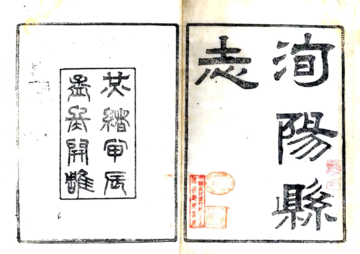 洵陽縣
志
光緒甲辰
孟冬開雕